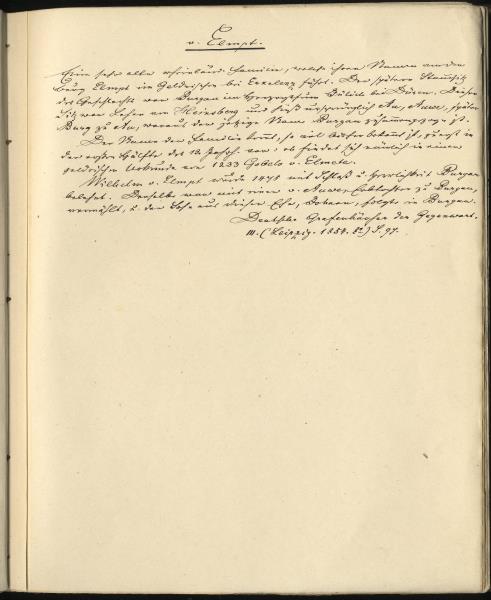 v. Elmpt.
Eine sehr alte rheinländ. Familie, welche ihren Namen von der
Burg Elmpt im Geldrischen bei Erkelenz führt. Der spätere Stammsitz
des Geschlechts war Burgau im Herzogthum Jülich bei Düren. Dieser
Sitz war Lehen von Heinsberg und hieß ursprünglich Au, Auwe, später
Burg zu Au, woraus der jetzige Name Burgau zusammengezogen ist.
Der Name der Familie kömt, so viel bisher bekannt ist, zuerst in
der ersten Hälfte des 13 Jahrh. vor: es findet sich nämlich in einer
geldrischen Urkunde von 1233 Gobelo v. Elmete.
Wilhelm v. Elmpt wurde 1478 mit Schloß u Herrlichkeit Burgau
belehnt. Derselbe war mit einer v. Auwe, Erbtochter zu Burgau,
vermählt, u der Sohn aus dieser Ehe, folgte in Burgau.
Deutsche Grafenhäuser der Gegenwart.
III. (Leipzig. 1854. 8o) S. 97.